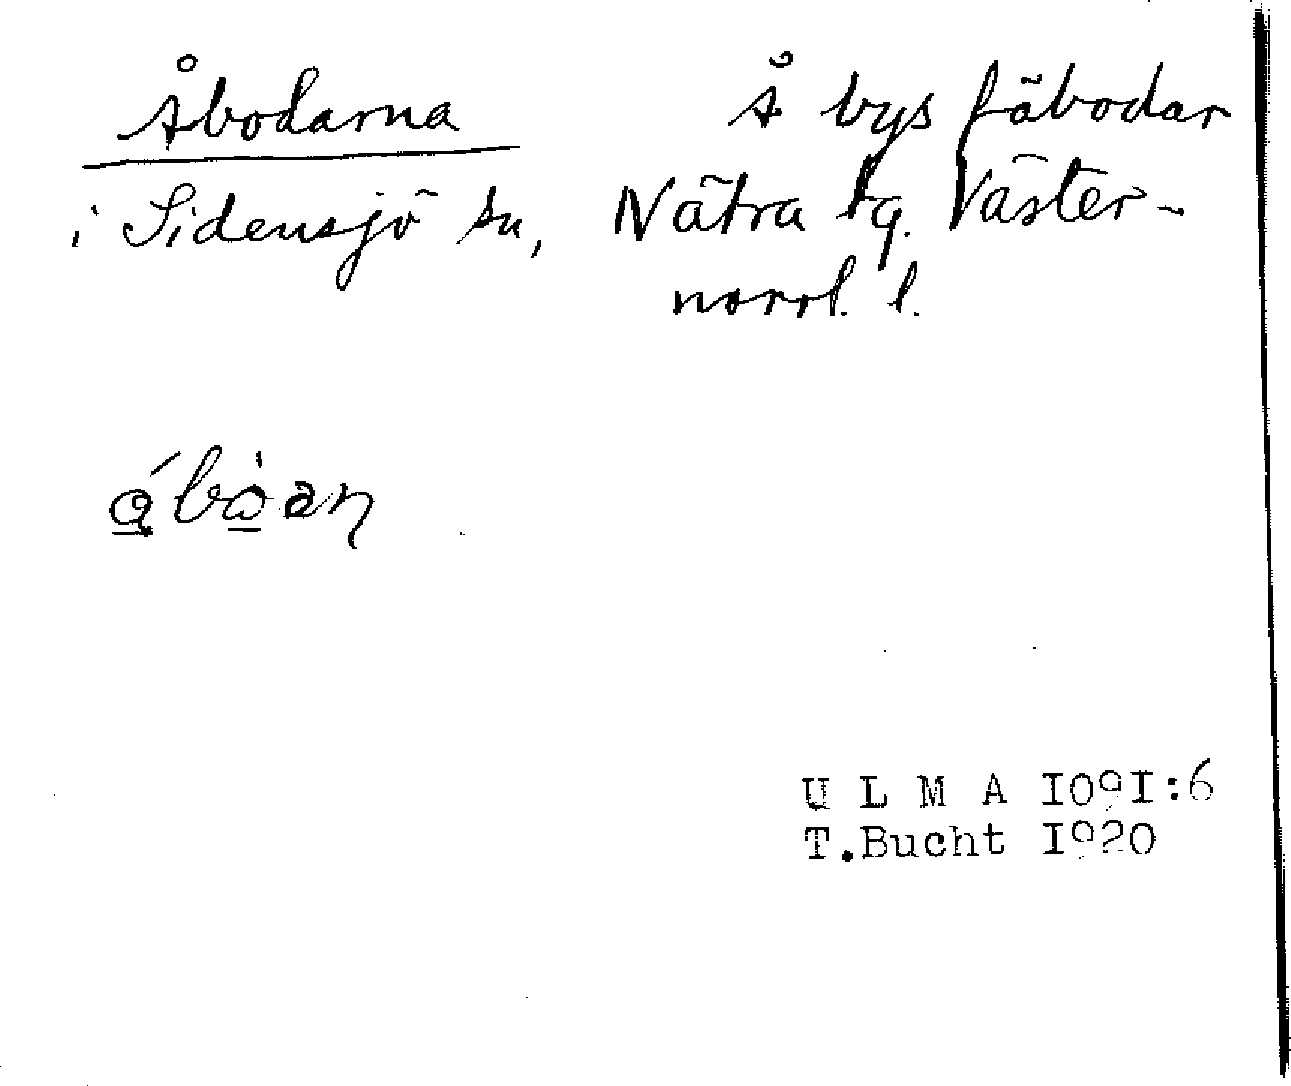 Åbodarna Å bys fäbodar
i Sidensjö sn, Nätra tg. Väster-
norrl. l.
ábòan
U L M A I091:6
T.Bucht I920